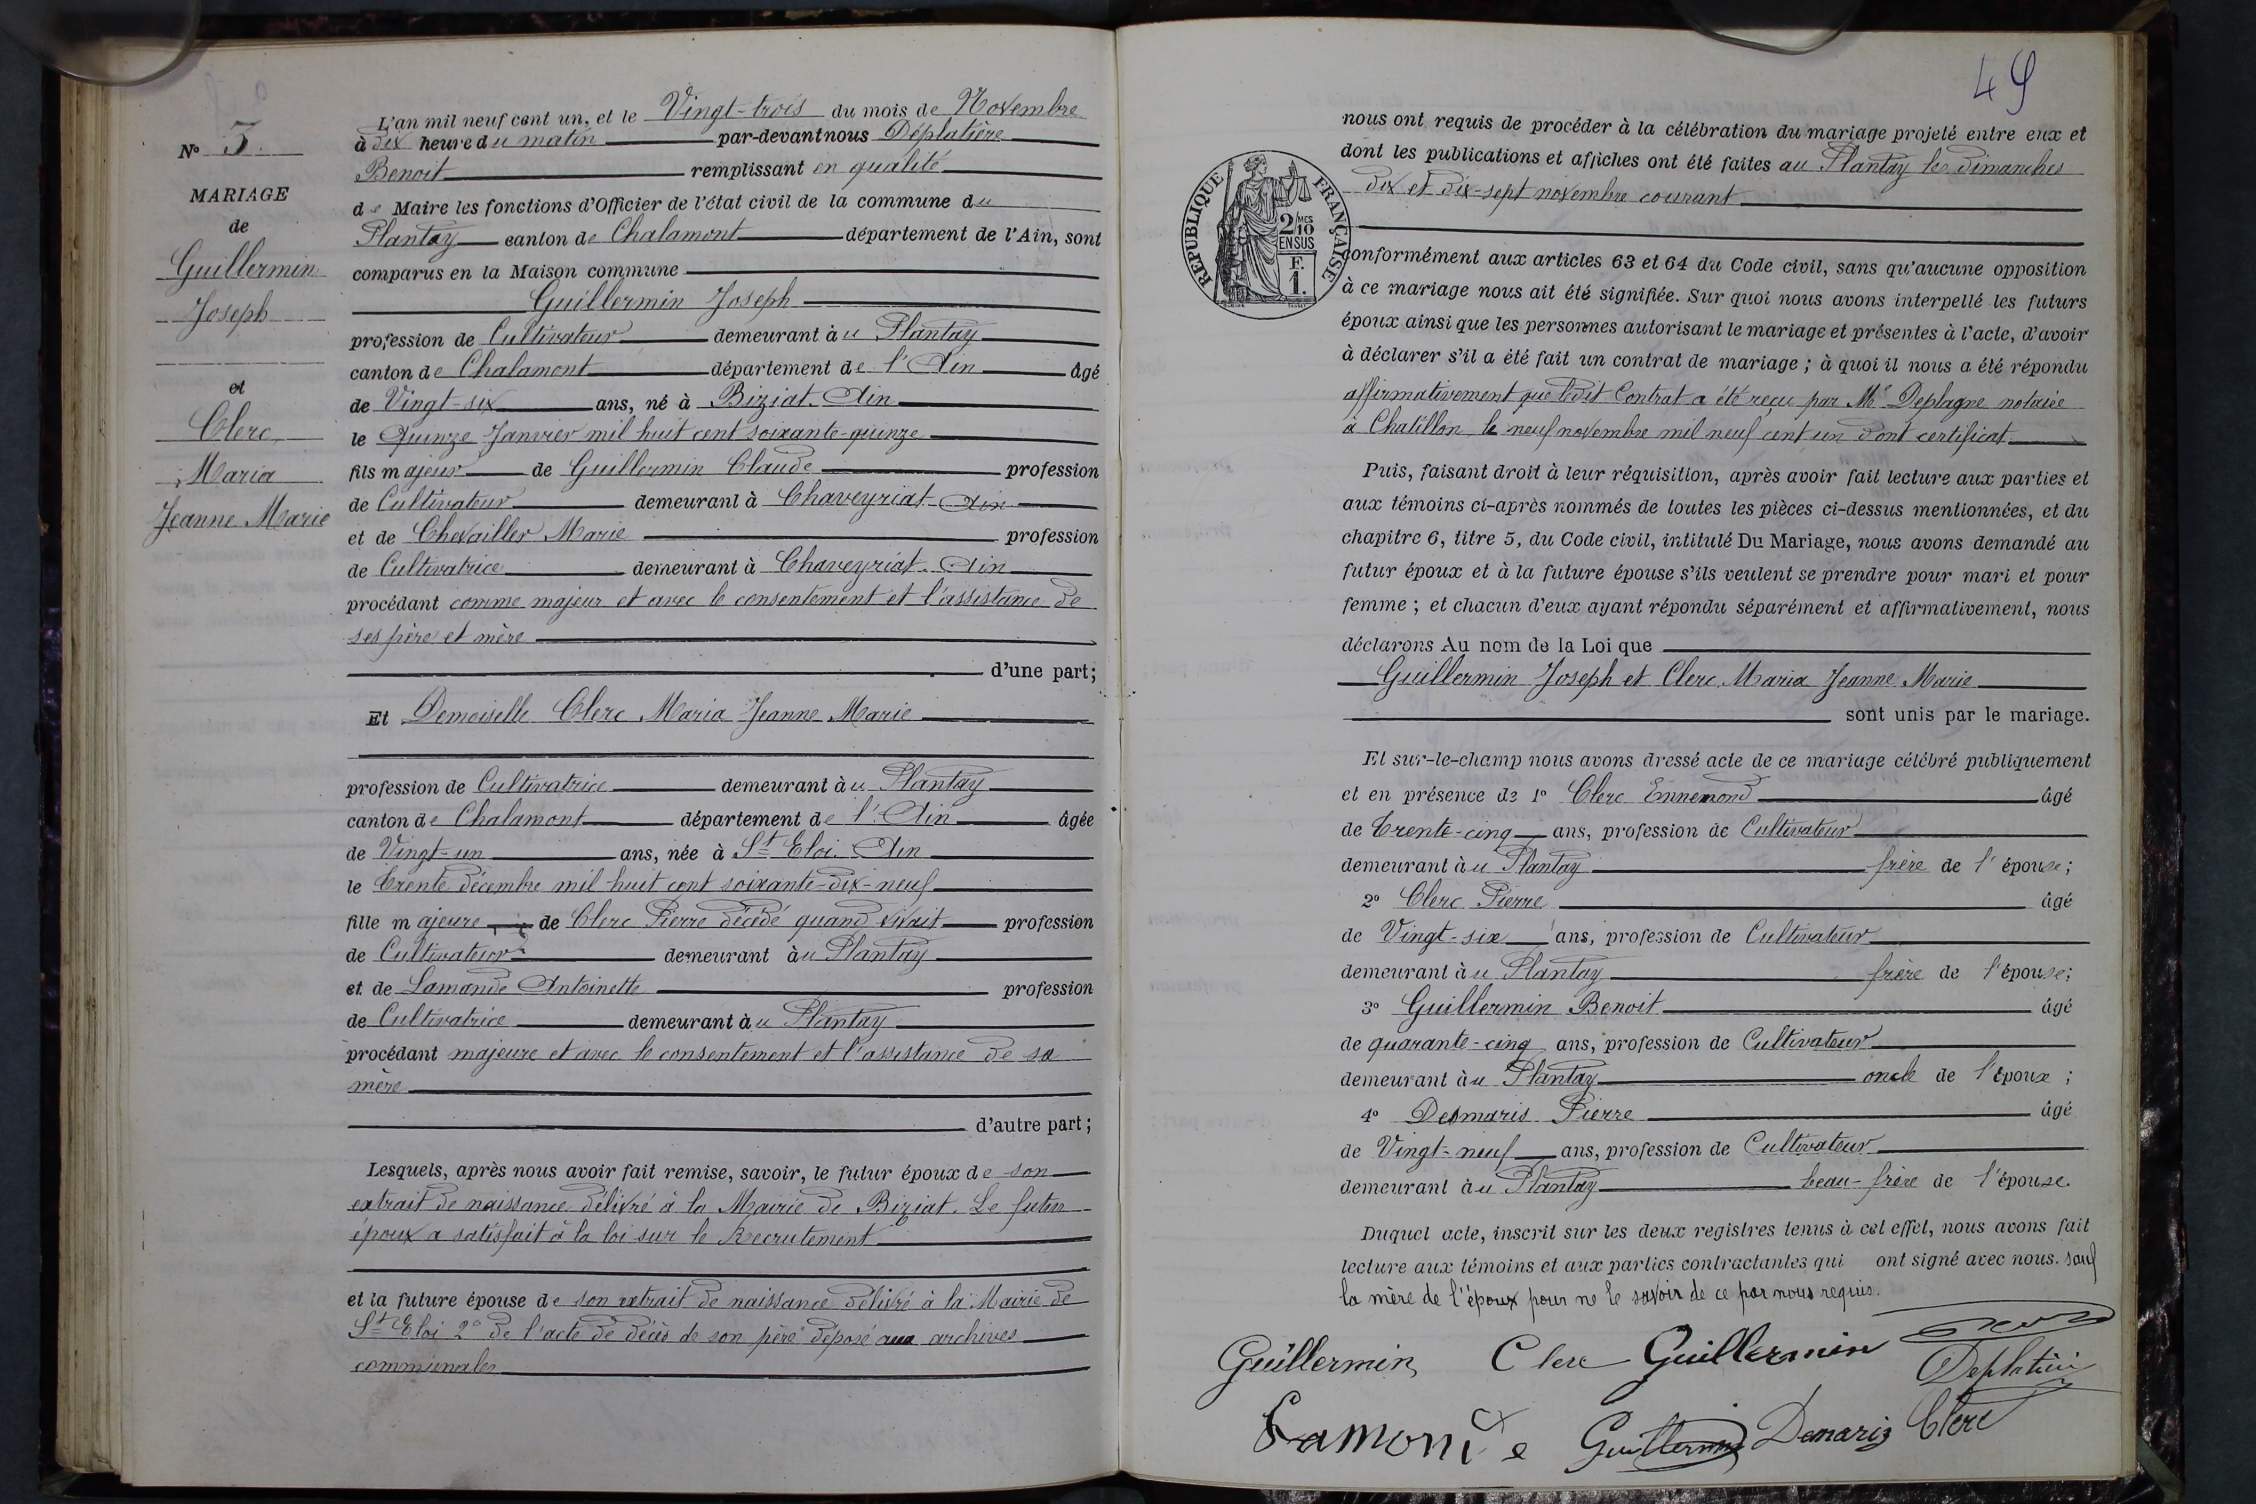 N° 3.
MARIAGE
de
Guillermin
Joseph
et
Clerc
Maria
Jeanne Marie
L'an mil neuf cent un, et le Vingt-trois du mois de Novembre
à dix heure du matin par-devant nous Déplatière
Benoit remplissant en qualité
de Maire les fonctions d'Officier de l'état civil de la commune du
Plantay canton de Chalamont département de l'Ain, sont
comparus en la Maison commune
Guillermin Joseph
profession de Cultivateur demeurant àu Plantay
canton de Chalamont département de l'Ain âgé
de Vingt-six ans, né à Biziat. Ain
le Quinze Janvier mil huit cent soixante-quinze
fils majeur de Guillermin Claude profession
de Cultivateur demeurant à Chaveyriat Ain
et de Chevailler Marie profession
de Cultivatrice demeurant à Chaveyriat. Ain
procédant comme majeur et avec le consentement et l'assistance de
ses père et mère
d'une part;
Et Demoiselle Clerc Maria Jeanne Marie
profession de Cultivatrice demeurant àu Plantay
canton de Chalamont département de l'Ain âgée
de Vingt-un ans, née à St Eloi. Ain
le trente décembre mil huit cent soixante-dix-neuf
fille majeure de Clerc Pierre décédé quand vivait profession
de Cultivateur demeurant àu Plantay
et de Lamande Antoinette profession
de Cultivatrice demeurant àu Plantay
procédant majeure et avec le consentement et l'assistance de sa
mère
d'autre part;
Lesquels, après nous avoir fait remise, savoir, le futur époux de son
extrait de naissance délivré à la Mairie de Biziat. Le futur
époux a satisfait à la loi sur le Recrutement
et la future épouse de son extrait de naissance délivré à la Mairie de
St Eloi 2° de l'acte de décès de son père déposé aux archives
communales
49
RÉPUBLIQUE FRANÇAISE
2/10 MES
EN SUS
F.
1.
nous ont requis de procéder à la célébration du mariage projeté entre eux et
dont les publications et affiches ont été faites au Plantay les dimanches
dix et dix-sept novembre courant
conformément aux articles 63 et 64 du Code civil, sans qu'aucune opposition
à ce mariage nous ait été signifiée. Sur quoi nous avons interpellé les futurs
époux ainsi que les personnes autorisant le mariage et présentes à l'acte, d'avoir
à déclarer s'il a été fait un contrat de mariage ; à quoi il nous a été répondu
affirmativement que ledit Contrat a été reçu par Me Deplagne notaire
à Chatillon le neuf novembre mil neuf cent un dont certificat
Puis, faisant droit à leur réquisition, après avoir fait lecture aux parties et
aux témoins ci-après nommés de toutes les pièces ci-dessus mentionnées, et du
chapitre 6, titre 5, du Code civil, intitulé Du Mariage, nous avons demandé au
futur époux et à la future épouse s'ils veulent se prendre pour mari et pour
femme ; et chacun d'eux ayant répondu séparément et affirmativement, nous
déclarons Au nom de la Loi que
Guillermin Joseph et Clerc Maria Jeanne Marie
sont unis par le mariage.
Et sur-le-champ nous avons dressé acte de ce mariage célébré publiquement
et en présence de 1° Clerc Ennemond âgé
de trente-cinq ans, profession de Cultivateur
demeurant àu Plantay frère de l'épouse;
2° Clerc Pierre âgé
de Vingt-six ans, profession de Cultivateur
demeurant àu Plantay frère de l'épouse;
3° Guillermin Benoit âgé
de quarante-cinq ans, profession de Cultivateur
demeurant àu Plantay oncle de l'époux ;
4° Desmaris Pierre âgé
de Vingt-neuf ans, profession de Cultivateur
demeurant àu Plantay beau-frère de l'épouse.
Duquel acte, inscrit sur les deux registres tenus à cet effet, nous avons fait
lecture aux témoins et aux parties contractantes qui ont signé avec nous. sauf
la mère de l'époux pour ne le savoir de ce par nous requis.
Guillermin Clerc Guillermin
Deplatière
Lamonde Guillermin Demaris Clerc